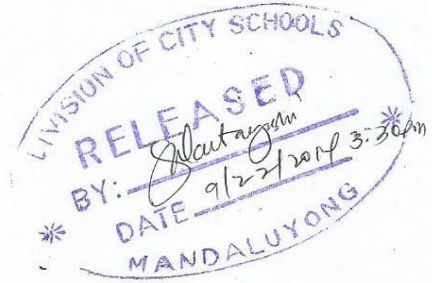 DIVISION OF CITY SCHOOLS
RELEASED
BY:
DATE 9/22/2014 3:30pm
* MANDALUYONG *